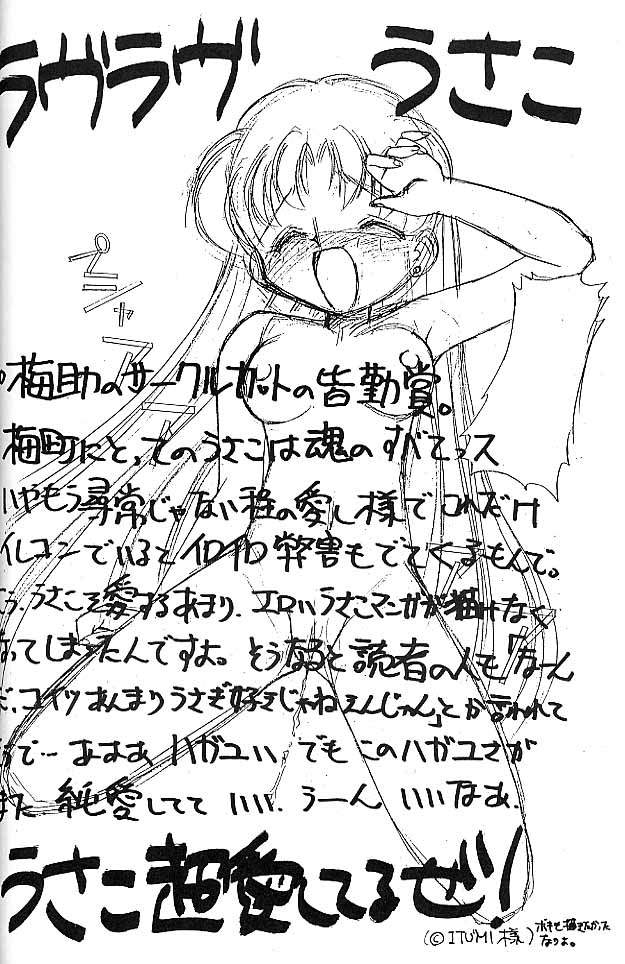 ラヴラヴ うさこ
ペシャアー
梅助のサークルカットの皆勤賞。
梅町にとってのうさこは魂のすべてっス
いやもう尋常じゃない程の愛し様でこれだけ
イレコンでいるとイロイロ弊害もでてくるもんで。
うさこを愛するあまり、エロいうさこマンガが描けなく
なってしまったんですよ。そうなると読者の人も「なーん
だ、コイツあんまりうさぎ好きじゃねぇんじゃん」とか言われて
で…あああ ハガユい でもこのハガユさが
また 純愛してて いい。うーん いいなあ。
うさこ超愛してるぜ!
(©ITUMI様)